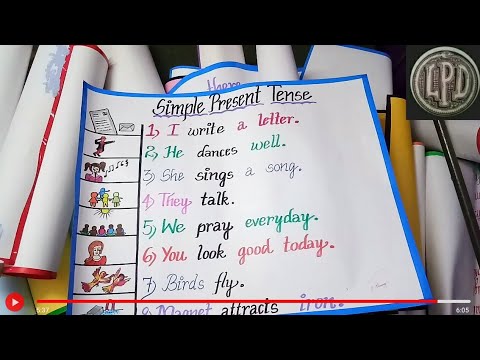 LPD
Simple Present Tense
1) I write a letter.
2) He dances well.
3) She sings a song.
4) They talk.
5) We pray everyday.
6) You look good today.
7) Birds fly.
8) Magnet attracts iron.
6:05